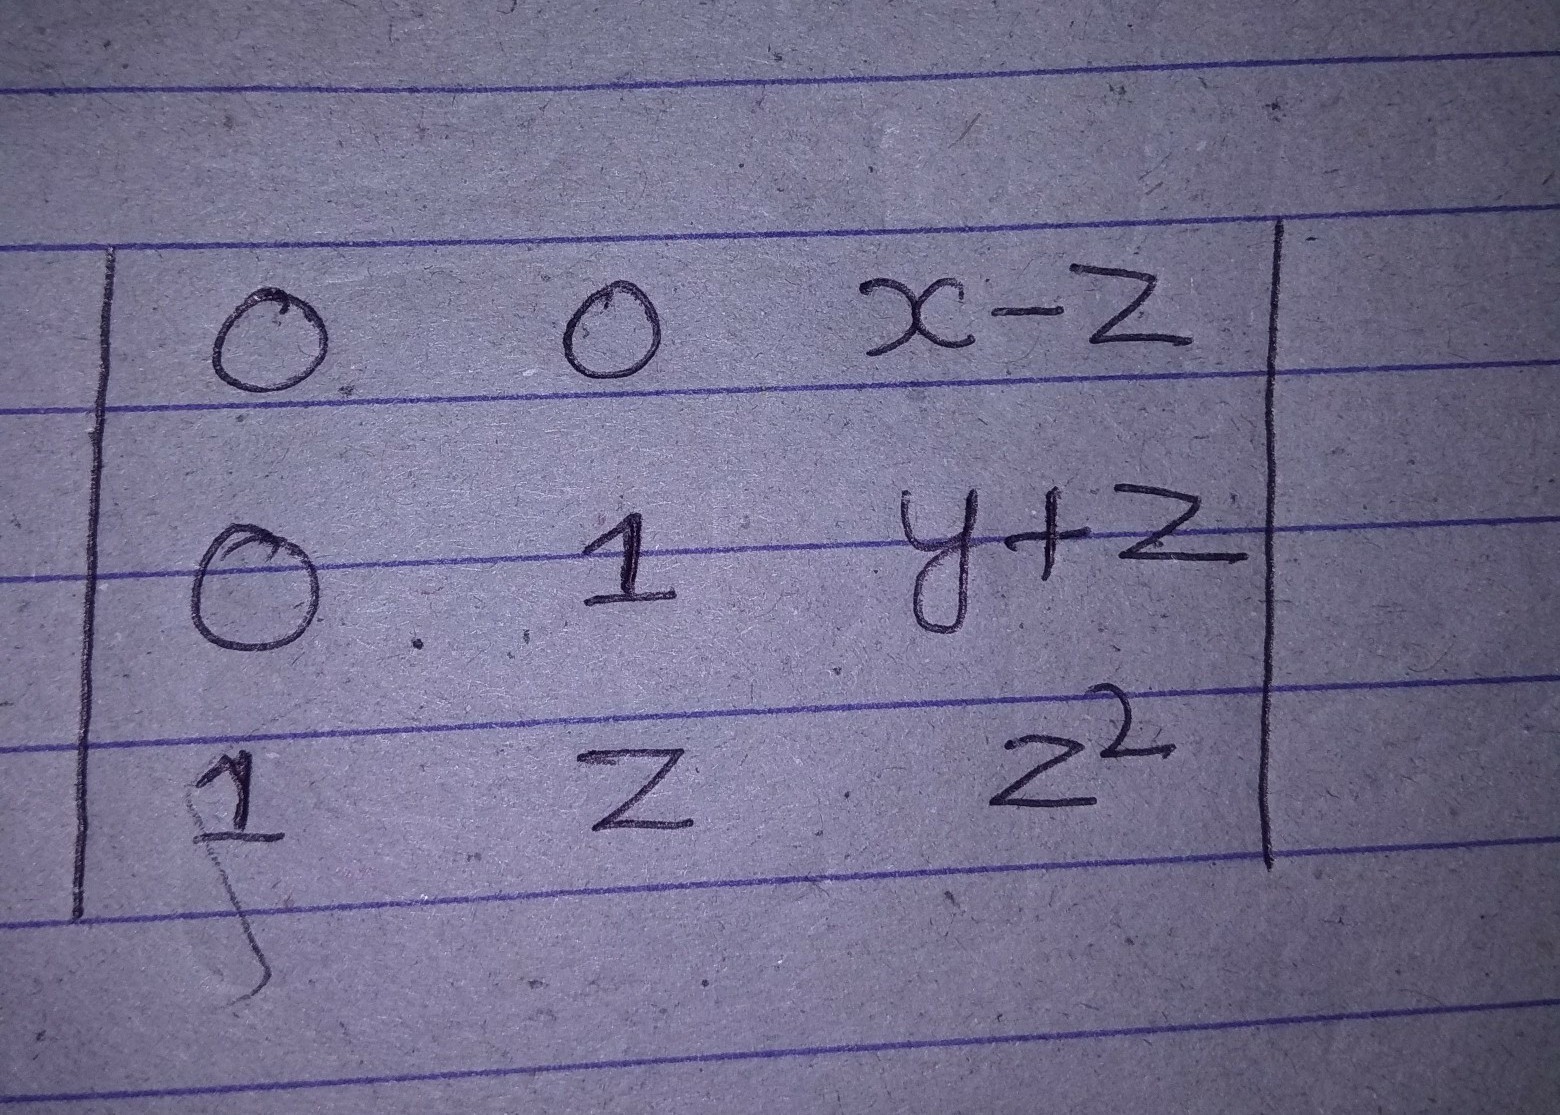 | 0 0 x-z |
| 0 1 y+z |
| 1 z z² |